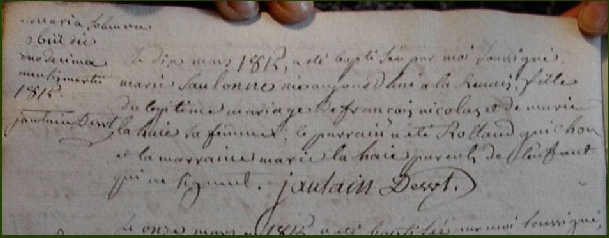 maria
obiit die
duodecima
mensis martii
1812.
jautain Desst
Le dix mars 1812, a été baptisée par moi soussigné,
marie née aujourd'hui a la fille
du légitime mariage de françois nicolas et de marie
la haie sa femme; le parrain a été Rolland
et la marraine marie la haie parents de l'enfant
qui ne signent. jautain Desst.
Le onze mars 1812 a été baptisée par moi soussigné,